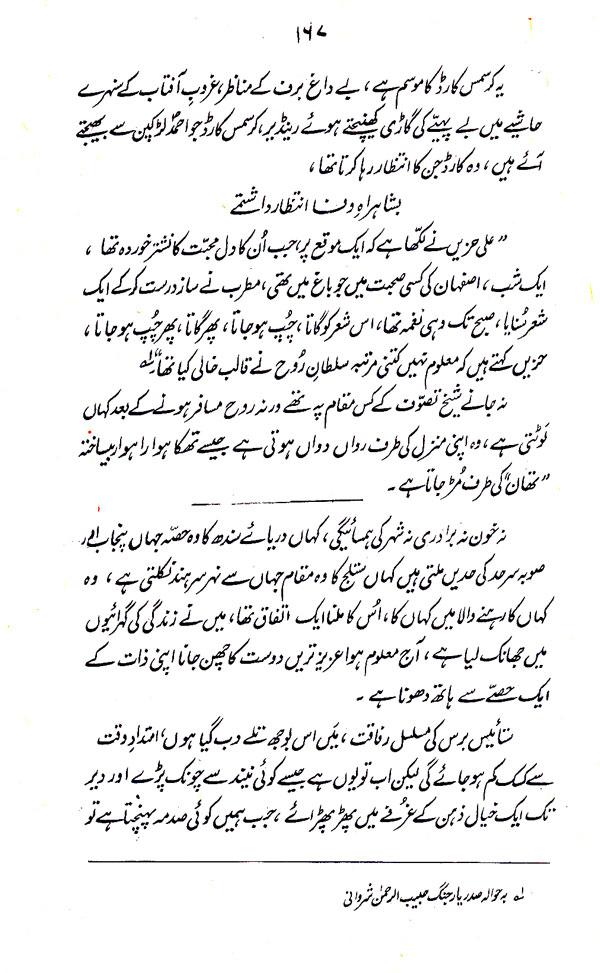 ۱۶۷
یہ کرسمس کارڈ کا موسم ہے، بے داغ برف کے مناظر، غروبِ آفتاب کے سنہرے
حاشیے میں بے پہیے کی گاڑی کھینچتے ہوئے رینڈیر، کرسمس کارڈ جو احمد لڑکپن سے بھیجتے
آئے ہیں، وہ کارڈ جن کا انتظار رہا کرتا تھا،
بشاہراہِ وفا انتظار داشتمے
"علی حزیں نے لکھا ہے کہ ایک موقع پر، جب اُن کا دل محبّت کا نشتر خوردہ تھا،
ایک شب، اصفہان کی کسی صحبت میں جو باغ میں تھی، مطرب نے ساز درست کرکے ایک
شعر سُنایا، صبح تک وہی نغمہ تھا، اس شعر کو گاتا، چُپ ہو جاتا، پھر گاتا، پھر چُپ ہو جاتا،
حزیں کہتے ہیں کہ معلوم نہیں کتنی مرتبہ سلطانِ رُوح نے قالب خالی کیا تھا" ؎۱
نہ جانے شیخ تصوّف کے کس مقام پہ تھے ورنہ روح مسافر ہونے کے بعد کہاں
لَوٹتی ہے، وہ اپنی منزل کی طرف رواں دواں ہوتی ہے جیسے تھکا ہوا راہوار بیساختہ
"تھان" کی طرف مُڑ جاتا ہے۔
نہ خون نہ برادری نہ شہر کی ہمسائیگی، کہاں دریائے سندھ کا وہ حصّہ جہاں پنجاب اور
صوبہ سرحد کی حدیں ملتی ہیں کہاں ستلج کا وہ مقام جہاں سے نہر سرہند نکلتی ہے، وہ
کہاں کا رہنے والا میں کہاں کا، اُس کا ملنا ایک اتفاق تھا، میں نے زندگی کی گہرائیوں
میں جھانک لیا ہے، آج معلوم ہوا عزیز ترین دوست کا چھن جانا اپنی ذات کے
ایک حصّے سے ہاتھ دھونا ہے۔
ستائیس برس کی مسلسل رفاقت، میں اس بوجھ تلے دب گیا ہوں، امتدادِ وقت
سے کسک کم ہو جائے گی لیکن اب تو یوں ہے جیسے کوئی نیند سے چونک پڑے اور دیر
تک ایک خیال ذہن کے غرفے میں پھڑپھڑائے، جب ہمیں کوئی صدمہ پہنچتا ہے تو
؎۱ بہ حوالہ صدر یار جنگ حبیب الرحمٰن شروانی